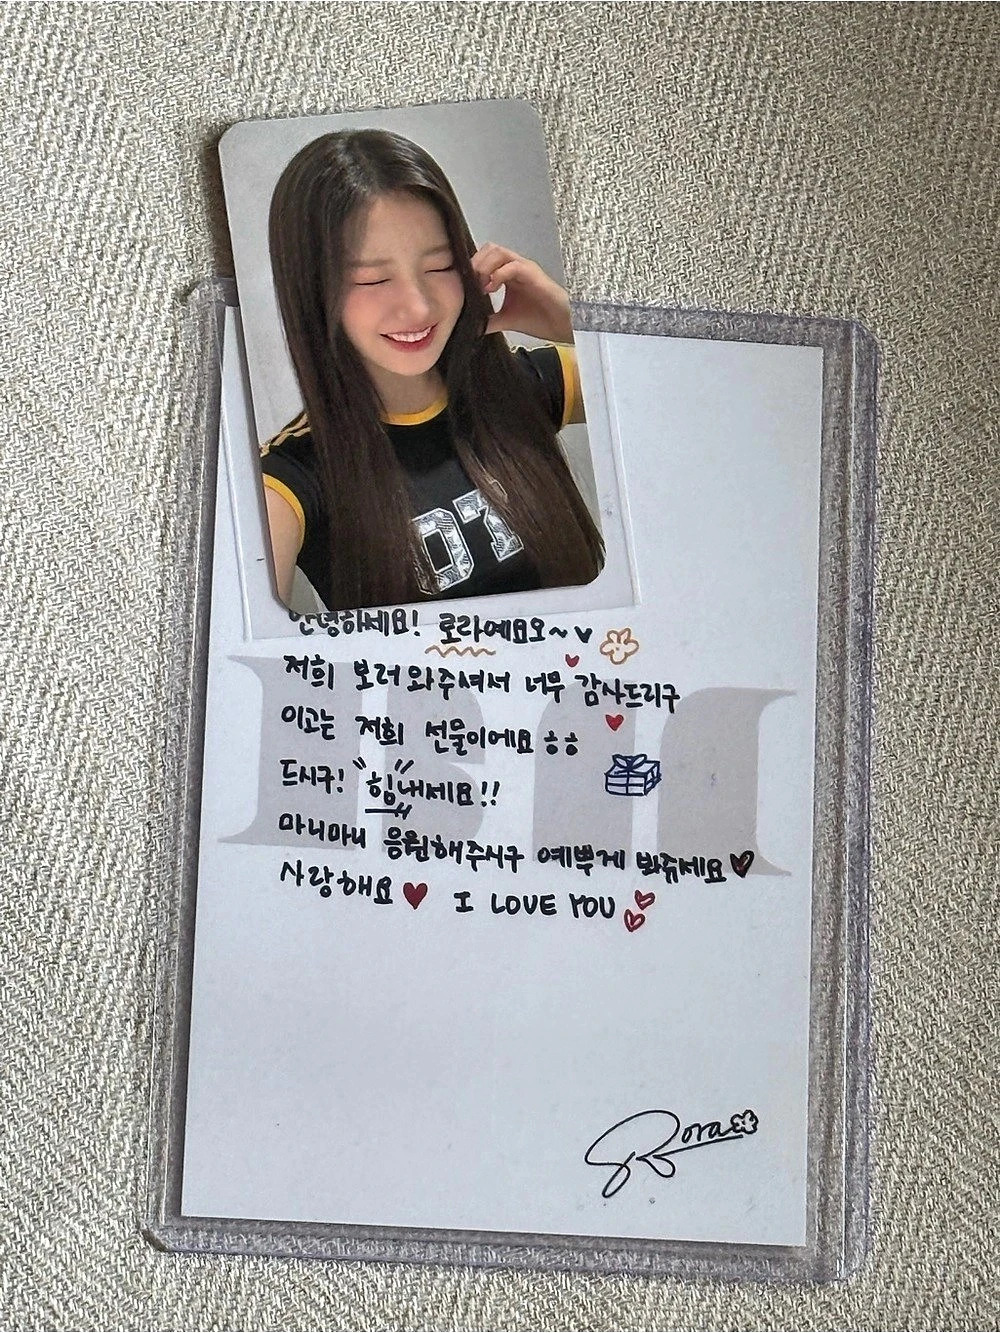 07
안녕하세요! 로라예요오~
저희 보러 와주셔서 너무 감사드리구
이고는 저희 선물이에요 ㅎㅎ
드시구! "힘"내세요!!
마니마니 응원해주시구 예쁘게 봐쥬세요
사랑해요 I LOVE YOU
Rora